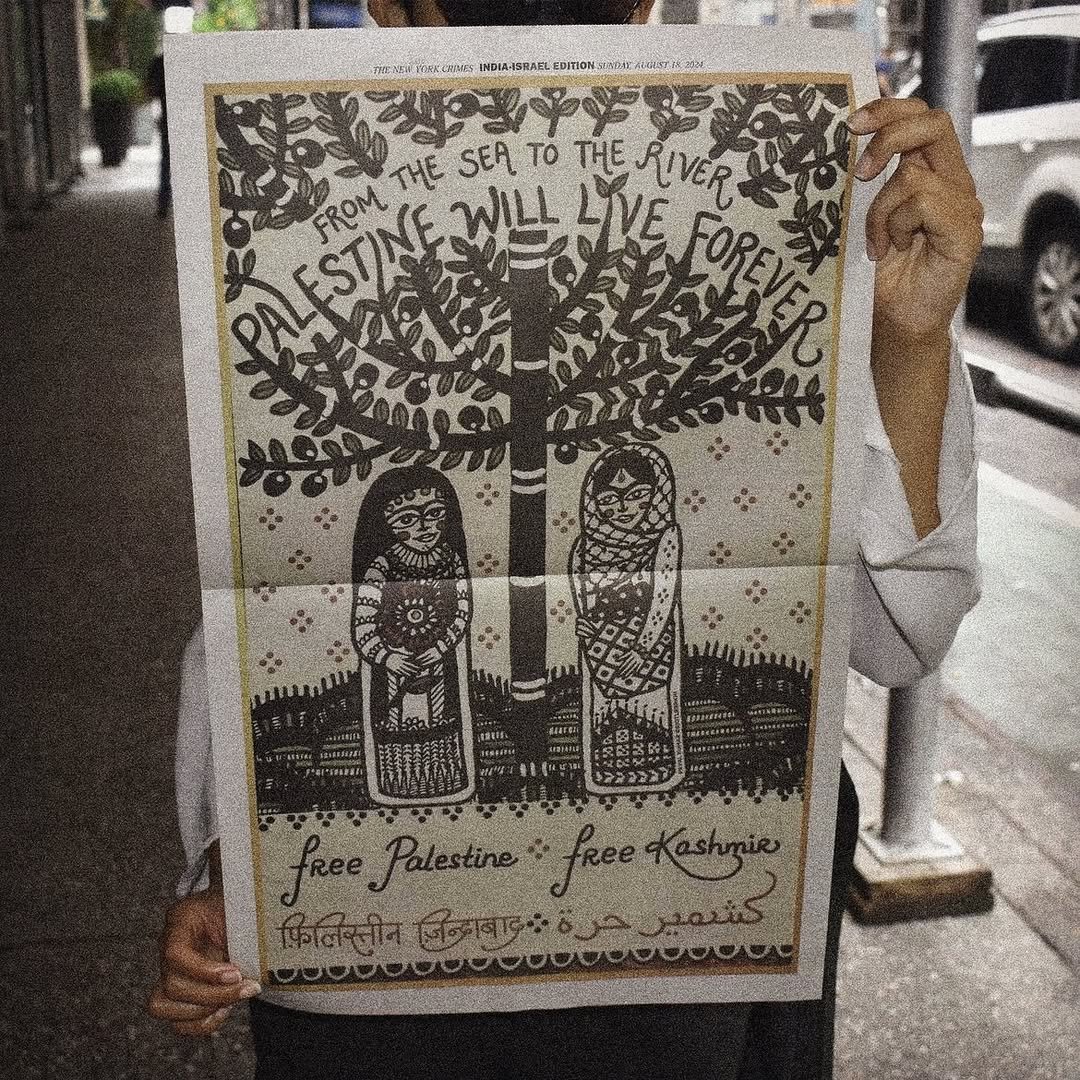 THE NEW YORK CRIMES INDIA-ISRAEL EDITION SUNDAY, AUGUST 18, 2024
FROM THE SEA TO THE RIVER
PALESTINE WILL LIVE FOREVER
free Palestine free Kashmir
फ़िलिस्तीन ज़िन्दाबाद كشمير حرة